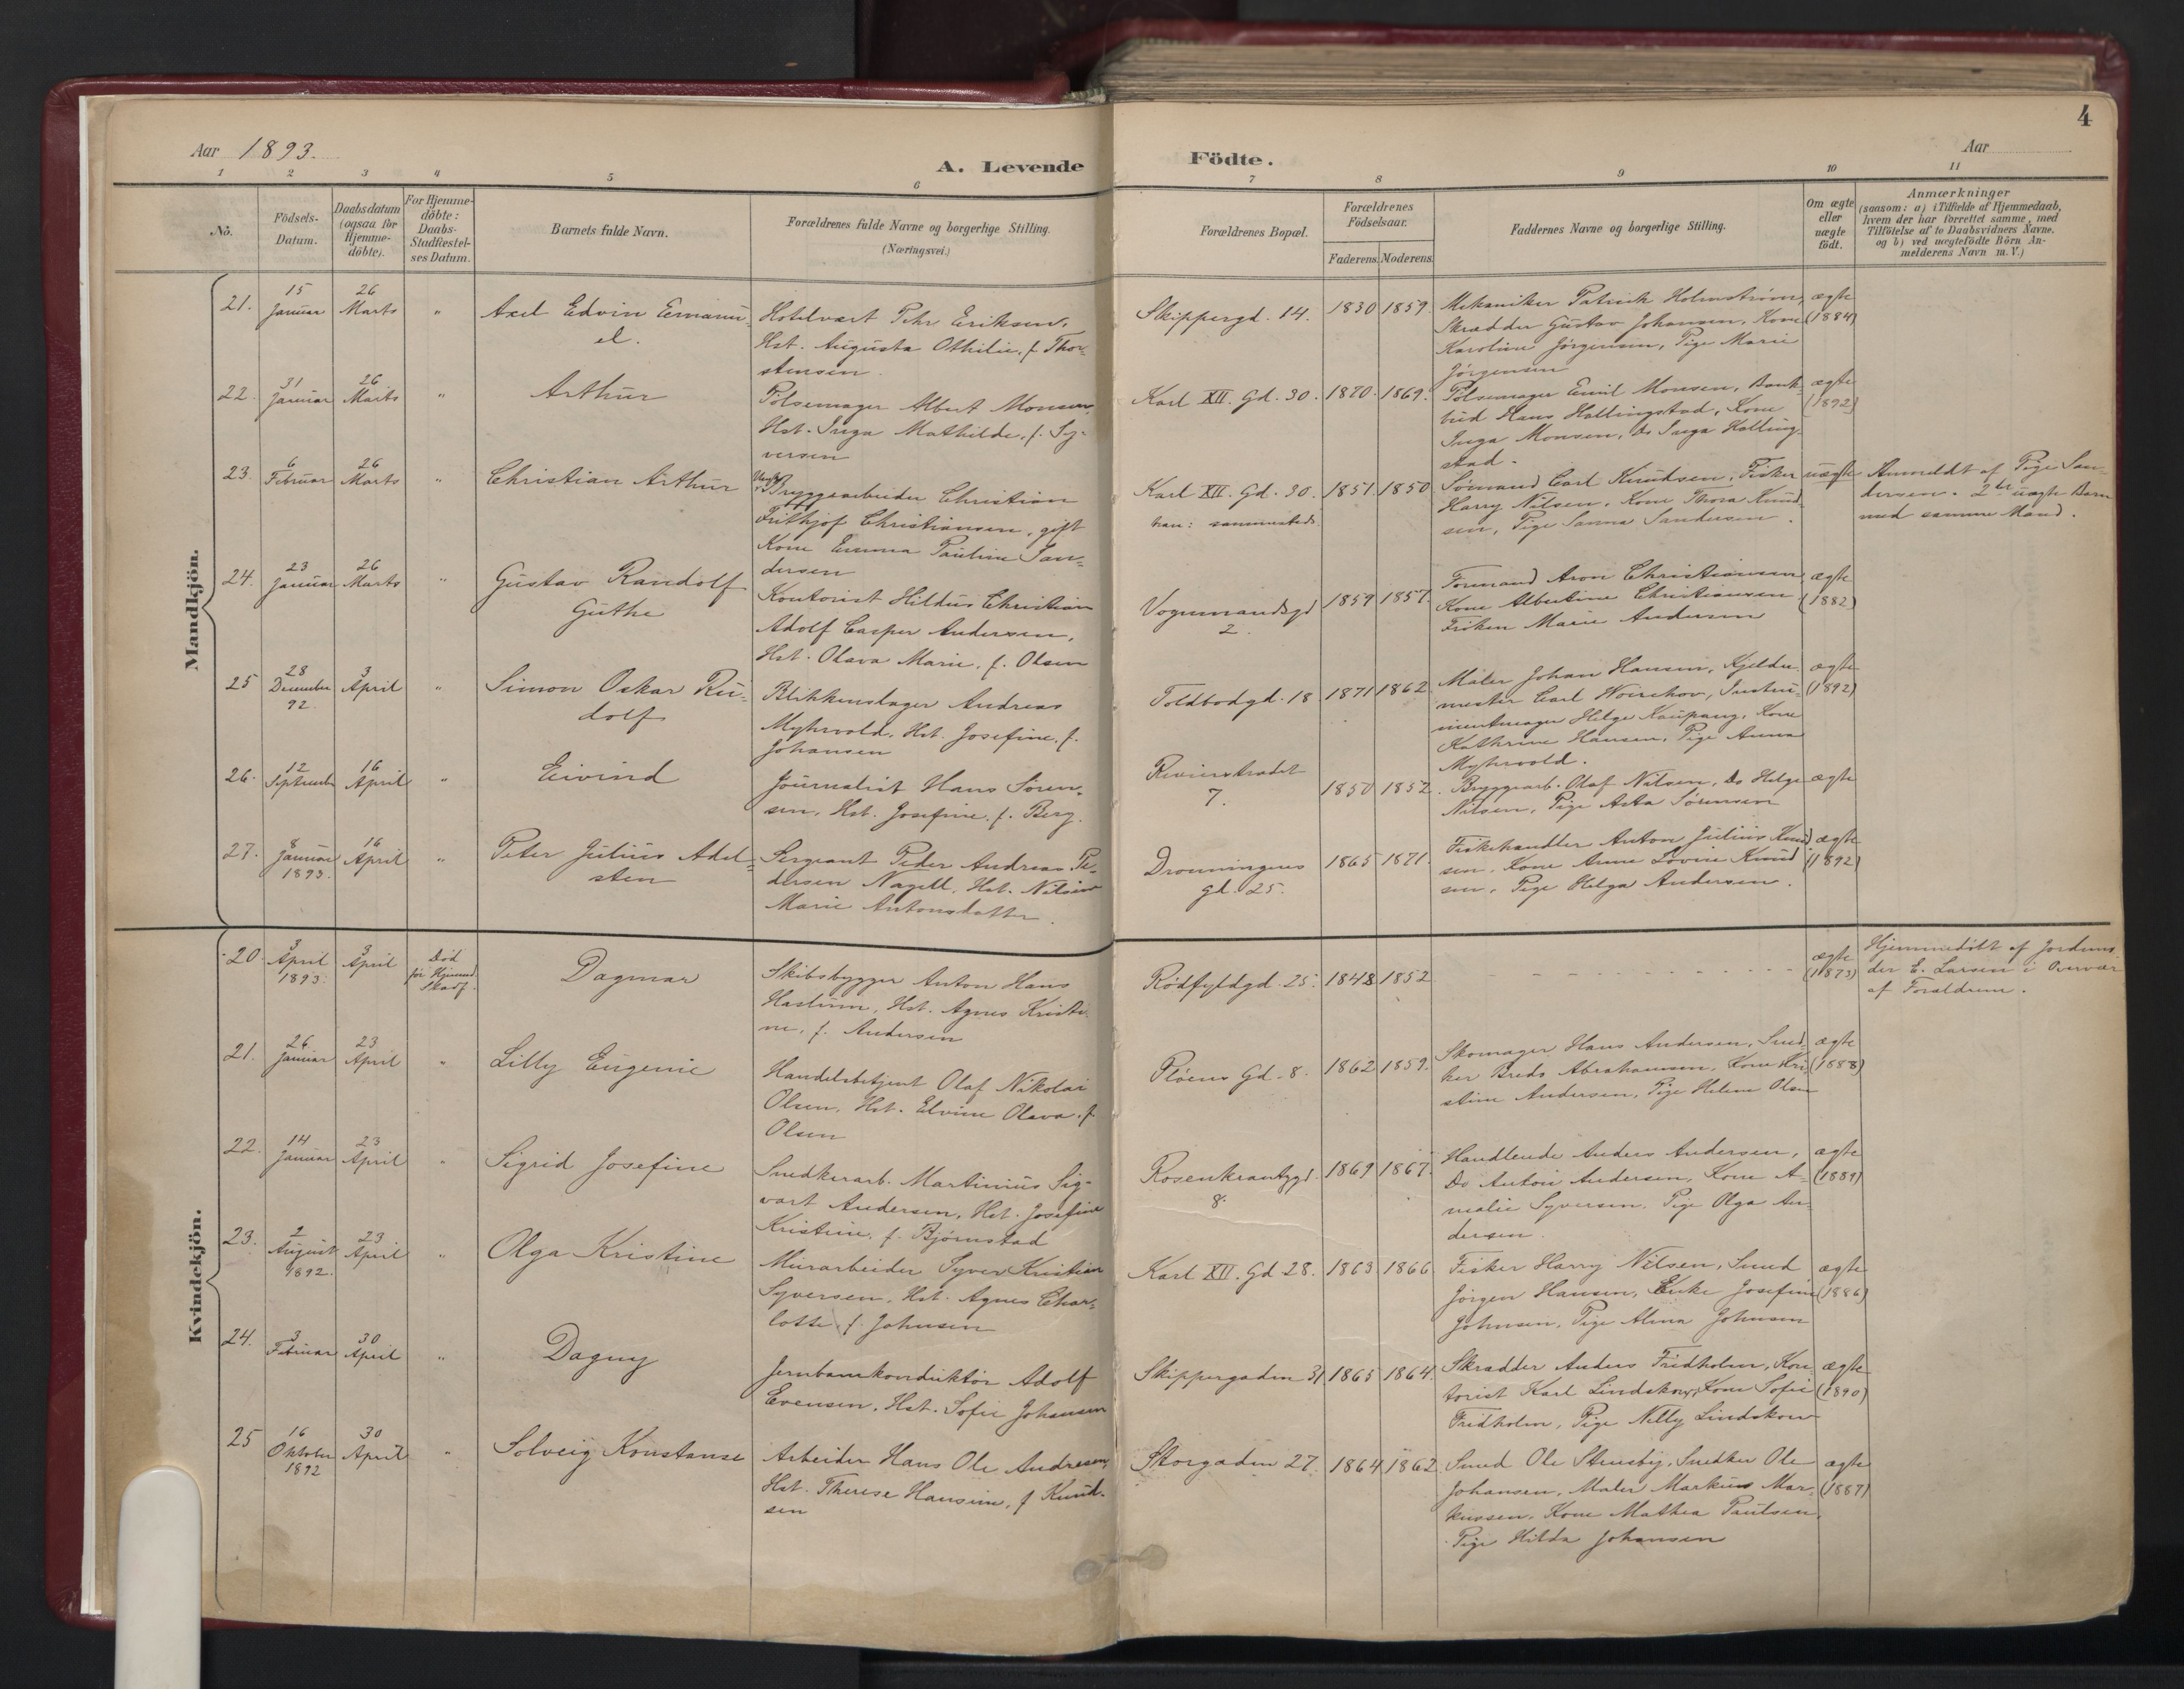 4
Aar 1893.
A. Levende Födte.
Aar
1 2 3 4 5 6 7 8 9 10 11
No.
Födsels-Datum.
Daabsdatum (ogsaa for Hjemme-döbte).
For Hjemme-döbte: Daabs-Stadfæstel-ses Datum.
Barnets fulde Navn.
Forældrenes fulde Navne og borgerlige Stilling.
(Næringsvei.)
Forældrenes Bopæl.
Forældrenes Födselsaar.
Faderens. Moderens.
Faddernes Navne og borgerlige Stilling.
Om ægte eller uægte født.
Anmærkninger
(saasom: a) i Tilfælde af Hjemmedaab,
hvem der har forrettet samme, med
Tilföielse af to Daabsvidners Navne.
og b) ved uægtefödte Börn An-
melderens Navn m. V.)
Mandkjön.
21. 15 Januar 26 Marts " Axel Edvin Emanu-
el.
Hotelvært Pehr Eriksen,
Hst. Augusta Othilie, f. Thor-
stensen.
Skippergd. 14. 1830 1859.
Mekaniker Patrick Holmstrøm,
Skrædder Gustav Johansen, Kone
Karoline Jörgensen, Pige Marie
Jörgensen
ægte (1884)
22. 31 Januar 26 Marts " Arthur
Pölsemager Albert Monsen,
Hst. Inga Mathilde, f. Sy-
versen
Karl XII. Gd. 30. 1870. 1869.
Pölsemager Emil Monsen, Bank-
bud Hans Hallingstad, Kone
Inga Monsen, Do Inga Halling-
stad.
ægte (1892)
23. 6 Februar 26 Marts " Christian Arthur
Bryggearbeider Christian
Frithjof Christiansen, gift
Kone Emma Pauline San-
dersen
Karl XII. Gd. 30. 1851. 1850
han: sammesteds.
Sömand Carl Knudsen, Fisker
Harry Nilsen, Kone Thora Knud-
sen, Pige Sanna Sandersen.
uægte
Anmeldt af Pige San-
dersen. 2det uægte Barn
med samme Mand.
24. 23 Januar 26 Marts " Gustav Randolf
Guthe
Kontorist Hildus Christian
Adolf Casper Andersen,
Hst. Olava Marie, f. Olsen
Vognmandsgd
2. 1859 1857.
Formand Aron Christiansen
Kone Albertine Christiansen
Frøken Marie Andersen
ægte (1882)
25 28 December 92. 3 April " Simon Oskar Ru-
dolf
Blikkenslager Andreas
Myhrvold, Hst. Josefine, f.
Johansen
Toldbodgd. 18 1871 1862
Maler Johan Hansen, Kjelder-
mester Carl Woirchov, Instru-
mentmager Helge Kaupang, Kone
Kathrine Hansen, Pige Anna
Myhrvold.
ægte (1892)
26. 12 September 16 April " Eivind
Journalist Hans Sören-
sen, Hst. Josefine, f. Berg.
Rivierstrædet
7. 1850 1852.
Bryggearb. Olaf Nilsen, Do Helge
Nilsen, Pige Asta Sörensen
ægte
27. 8 Januar 1893. 16 April " Peter Julius Adel-
sten
Sergeant Peder Andreas Pe-
dersen Nagell, Hst. Nilsine
Marie Antonsdatter.
Dronningens
gd. 25. 1865 1871.
Fiskehandler Anton Julius Knud-
sen, Kone Anne Lovise Knud-
sen, Pige Helga Andersen.
ægte (1892)
Kvindekjön.
20. 3 April 1893. 3 April Död før Hjemmed. Stadf. Dagmar
Skibsbygger Anton Hans
Hastum, Hst. Agnes Kristi-
ne, f. Andersen
Rödfyldgd. 25. 1848 1852
ægte (1873)
Hjemmedöbt af Jordmo-
der E. Larsen i Overvær
af Forældrene.
21. 26. Januar 23 April " Lilly Eugenie
Handelsbetjent Olaf Nikolai
Olsen, Hst. Elvine Olava, f.
Olsen
Plöens Gd. 8. 1862 1859.
Skomager Hans Andersen, Sned-
ker Bredo Abrahamsen, Kone Kri-
stine Andersen, Pige Helene Olsen
ægte (1888)
22. 14 Januar 23 April " Sigrid Josefine
Snedkerarb. Martinius Sig-
vart Andersen, Hst. Josefine
Kristine, f. Bjørnstad
Rosenkrantzgd.
8. 1869 1867.
Handlende Anders Andersen,
Do Anton Andersen, Kone A-
malie Syversen, Pige Olga An-
dersen.
ægte (1889)
23. 2 August 1892. 23 April " Olga Kristine
Murarbeider Syver Kristian
Syversen, Hst. Agnes Char-
lotte f. Johnsen
Karl XII. Gd 28. 1863 1866
Fisker Harry Nilsen, Smed
Jörgen Hansen, Enke Josefine
Johnsen, Pige Alma Johnsen
ægte (1886)
24. 3 Februar 30 April " Dagny
Jernbanekonduktör Adolf
Evensen, Hst. Sofie Johansen
Skippergaden 31 1865 1864.
Skrædder Anders Fridholm, Kon-
torist Karl Lindskow, Kone Sofie
Fridholm, Pige Nelly Lindskow
ægte (1890)
25 16 Oktober 1892 30 April " Solveig Konstanse
Arbeider Hans Ole Andresen,
Hst. Therese Hansine, f Knud-
sen
Storgaden 27. 1864 1862
Smed Ole Strusby, Snedker Ole
Johansen, Maler Markus Mar-
kussen, Kone Mathea Paulsen,
Pige Hilda Johansen
ægte (1887)